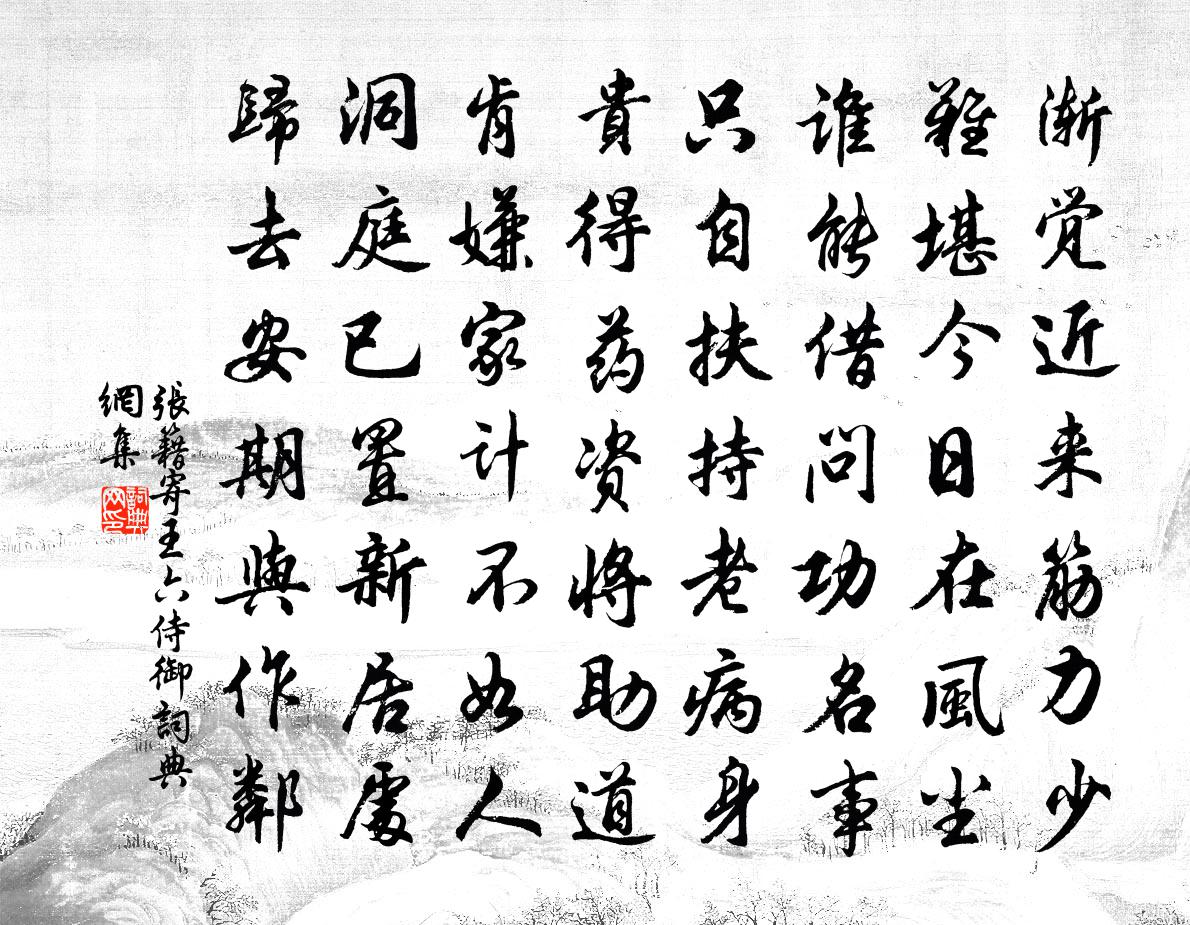 渐觉近来筋力少
難堪今日在風尘
谁能借問功名事
只自扶持老病身
貴得药资将助道
肯嫌家计不如人
洞庭已置新居處
歸去安期與作鄰
張籍寄王六侍御詞典
網集
詞典
网印